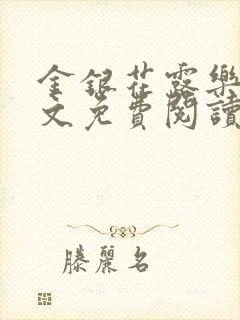 金銀花露樂
文免費閱讀
滕麗名